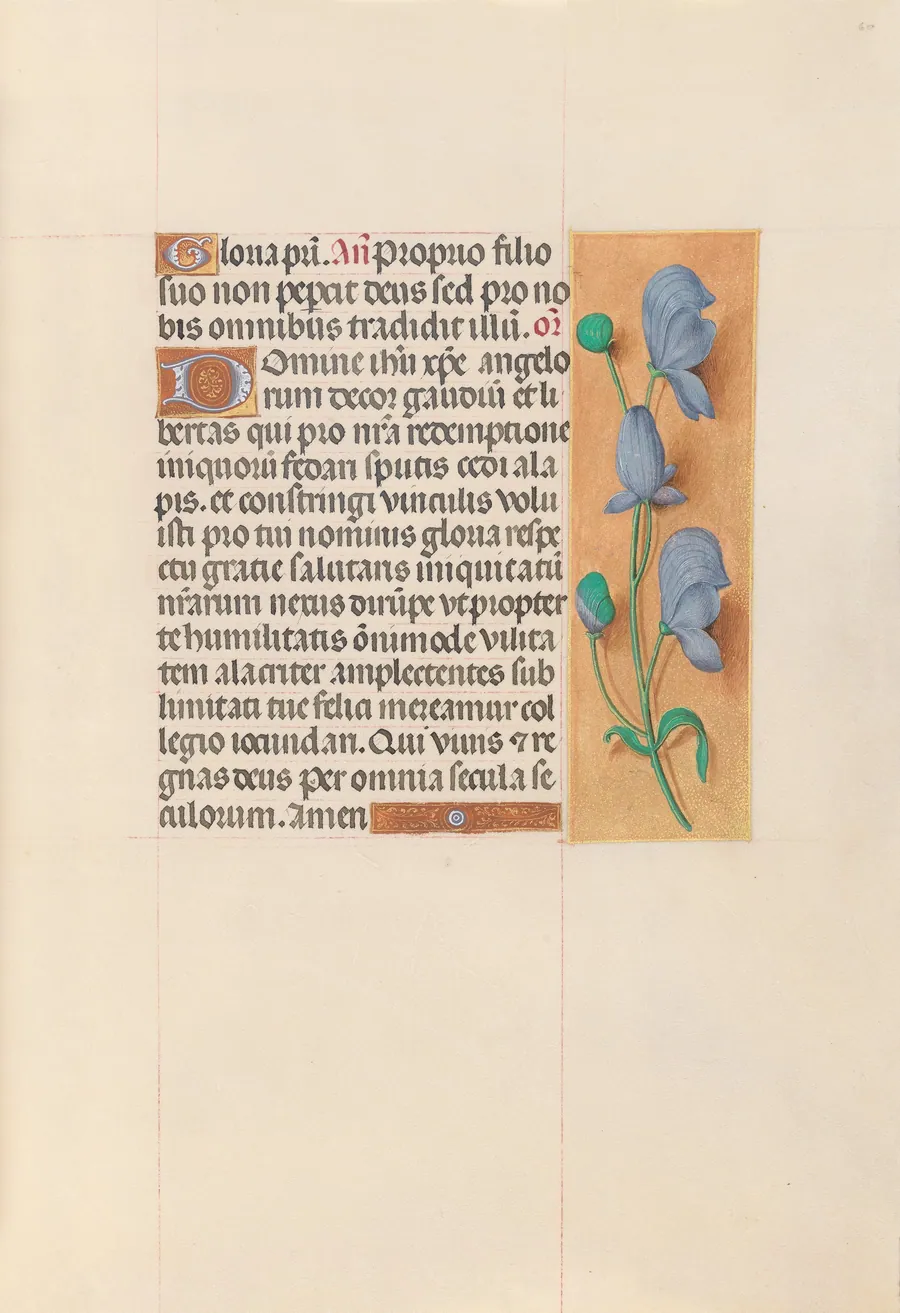 Gloria pr̄i. An̄ Proprio filio
suo non pepercit deus sed pro no
bis omnibus tradidit illū. or̄
Domine ihū xpē angelo
rum decor gaudiū et li
bertas qui pro nr̄a redemptione
iniquorū fedari sputis cedi ala
pis. et constringi vinculis volu
isti pro tui nominis gloria respe
ctu gratie salutaris iniquitatū
nr̄arum nexus dirūpe vt propter
te humilitatis ōnimode vilita
tem alacriter amplectentes sub
limitati tue felici mereamur col
legio iocundari. Qui viuis ⁊ re
gnas deus per omnia secula se
culorum. Amen